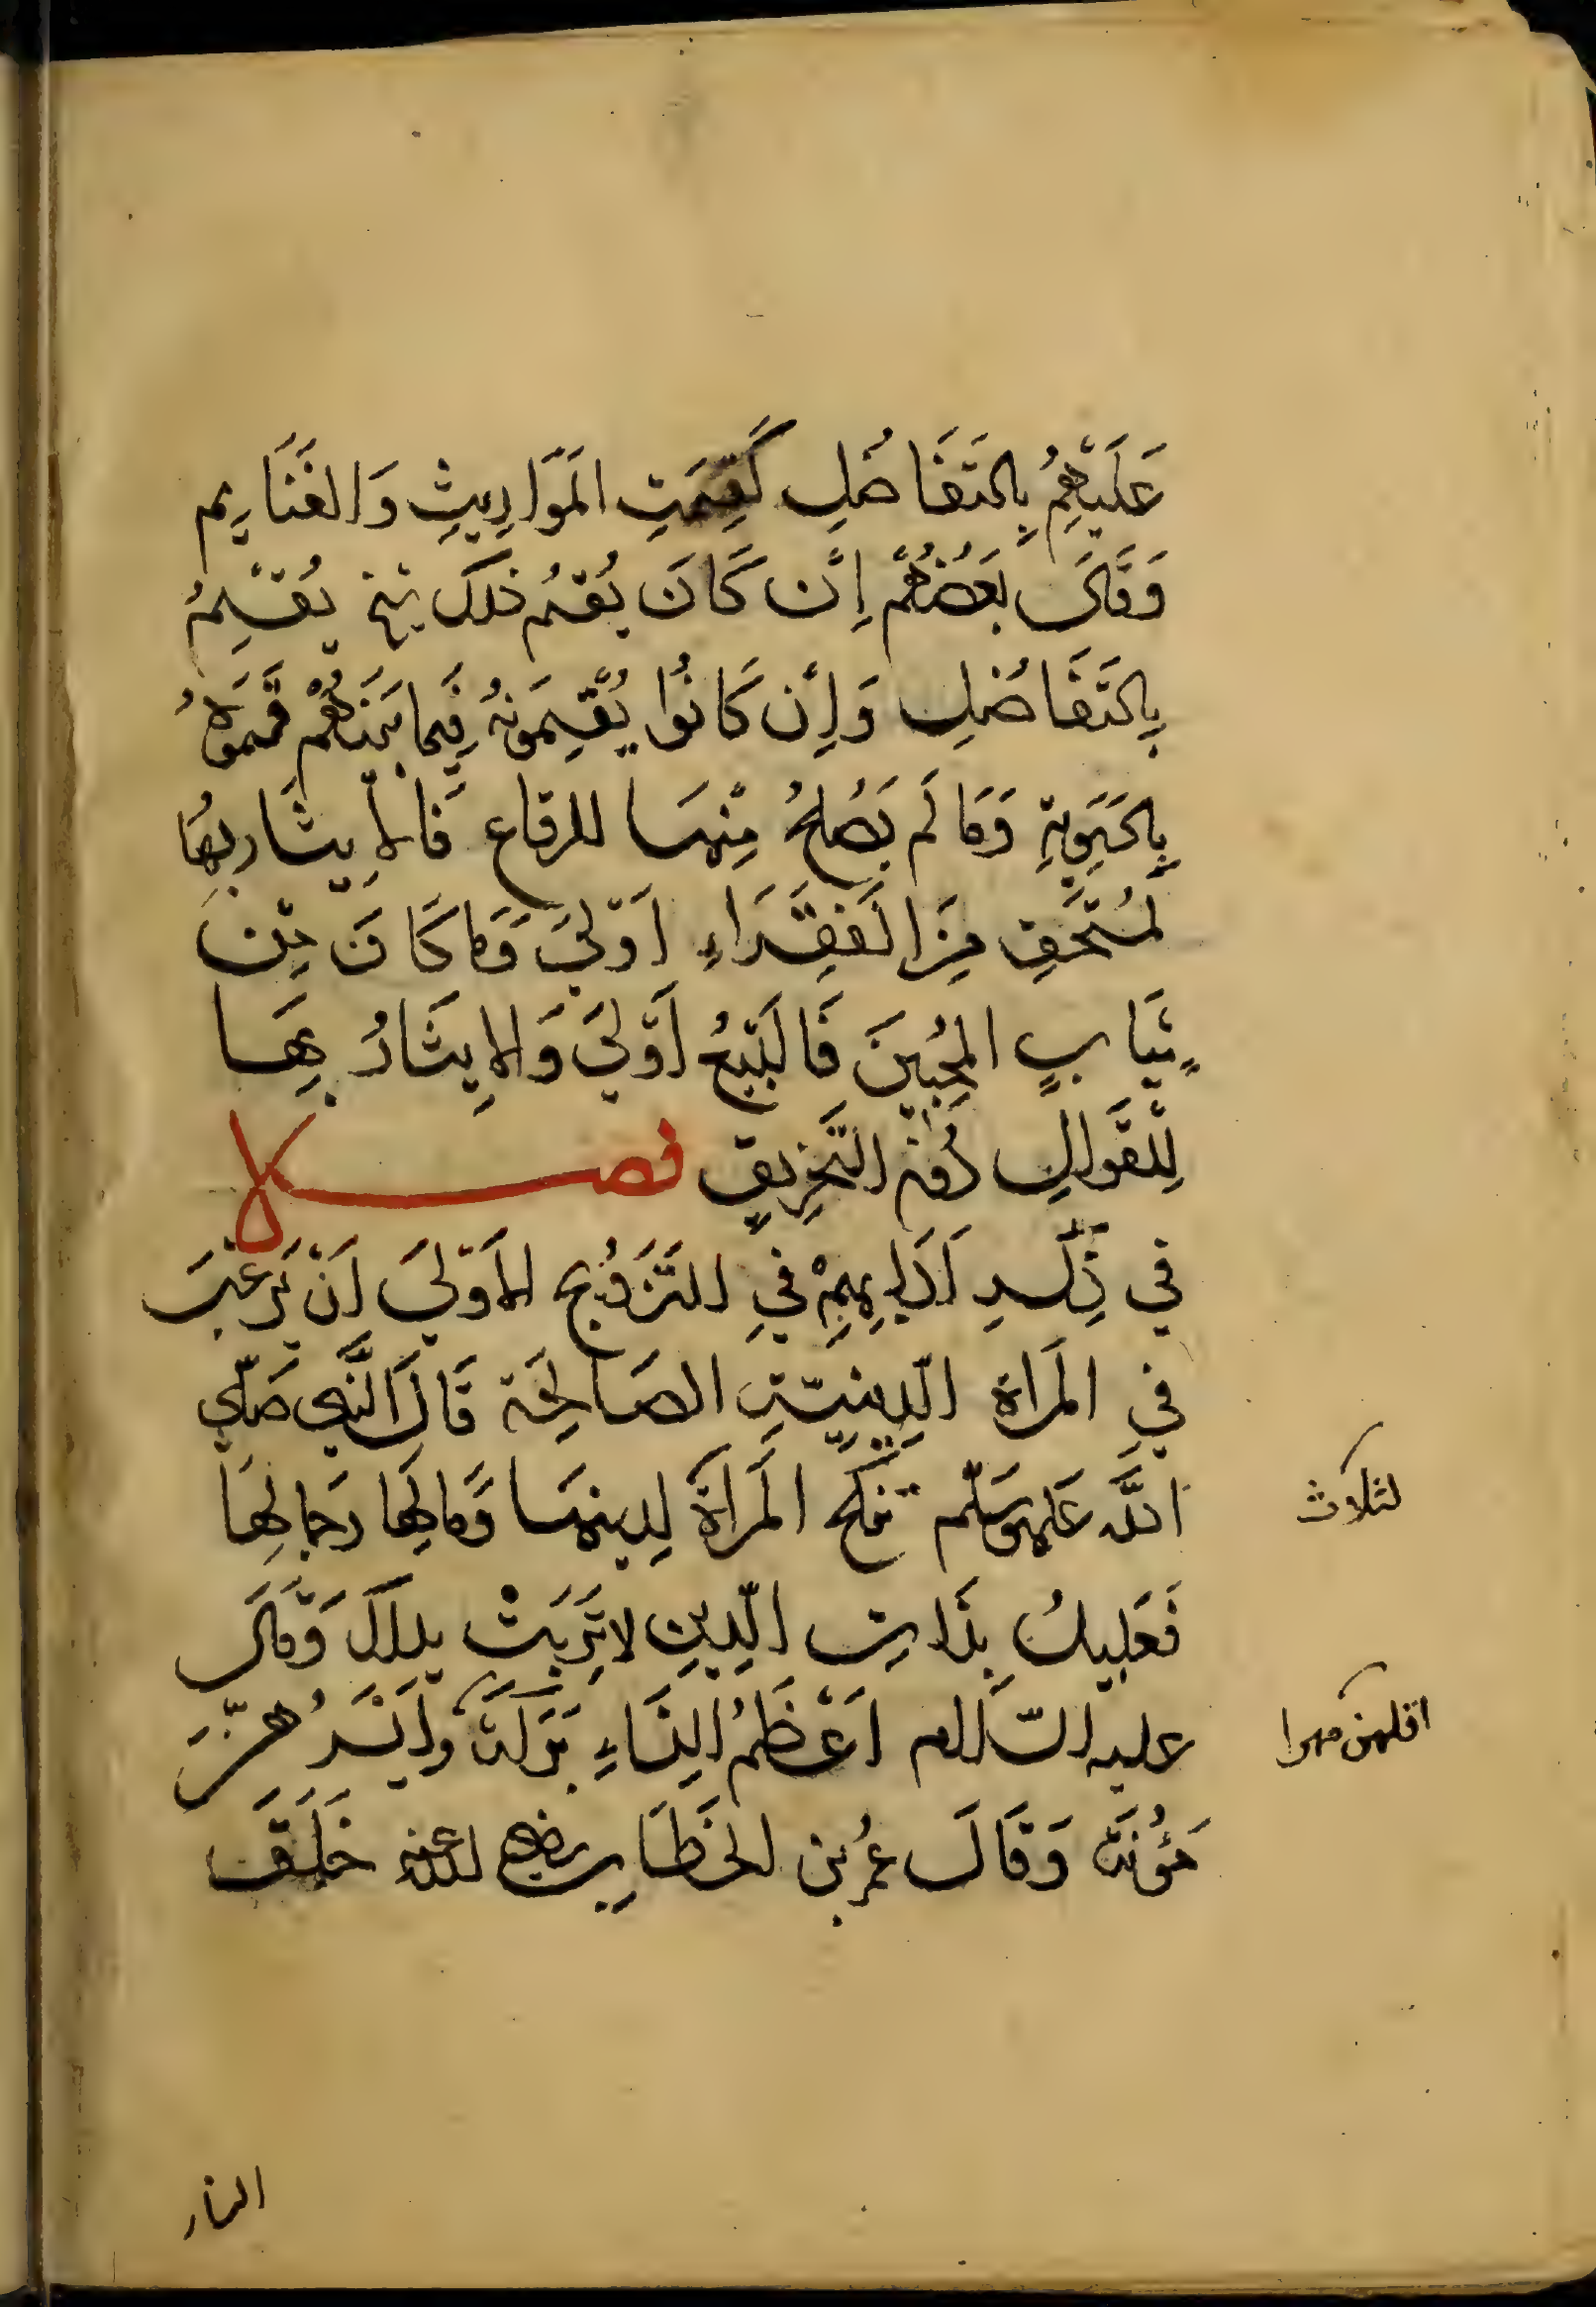 عَلَيْهِمُ بِالتَفَاضُلِ كَقِسْمَتِ المَوَارِيثِ وَالغَنَايِم
وَقَالَ بَعْضُهُمْ اِنْ كَانَ يُقْسِمُ ذلك شيخ يُقَسِّمُ
بِالتَّفَاضُلِ وَاِنْ كَانُوا يُقَسِمُونَهُ فِيمَا بَيْنَهُمْ قَسَمُوهُ
بِالسَوِيَّةِ وَمَا لَم يَصْلحُ مِنْهَا للرقاع فَالاِيثَار بِهَا
لمُسْتَحَقِ مِنَ الفُقَرَاءِ اَوْلَى وَمَا كَانَ مِن
ثِيَابِ المُحِبِّينَ فَالبَيْعُ اَوْلَى وَالاِيثَارُ بِهَا
لِلْقَوَالِ دُونَ التَّخْرِيقِ فصل
في ذِكْرِ اَدَابِهِمْ فِي التَّزَوُّجِ الاَوْلَى اَنْ يَرْغَبَ
في المَراة الدِينِيَّةِ الصَالِحَة قَالَ النَّبِي صَلّي
اللَّه عَليه وَسَلَّم تنكح المَراَة لِدِينِهَا وَمالِهَا وَجمالِهَا
لثلاث
فَعَلَيكَ بِذَاتِ الدِّينِ لا تَرِبَتْ يداك وَقَالَ
عليه السَّلام اَعْظَمُ النِسَاءِ بَرَكَةً وَاَيْسَرُهُنَّ
اقلهن مهرا
مَؤُنَةً وَقَالَ عُمَر بن الخَطَابِ رضي الله عنه خَلَقَ
النار